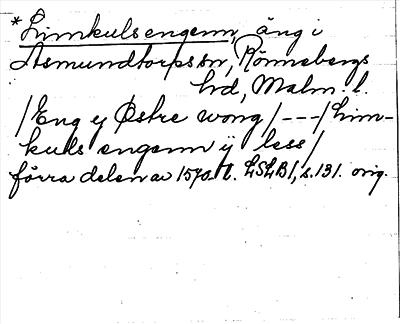 *Limkulsengenn, äng i
Asmundtorps sn, Rönnebergs
hd, Malm. l.
/Eng ej Østre wong/---/Lim-
kuls engenn ÿ less/
förra delen av 1570-t. LSLB1, s. 131. orig.